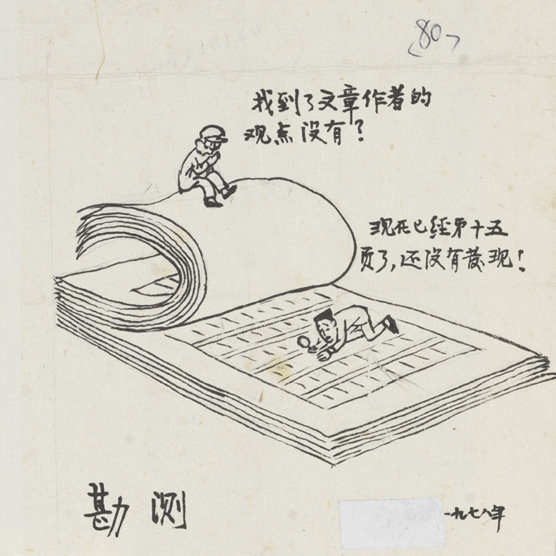 〈80〉
找到了文章作者的
观点没有？
现在已经第十五
页了，还没有发现！
勘测
一九七八年